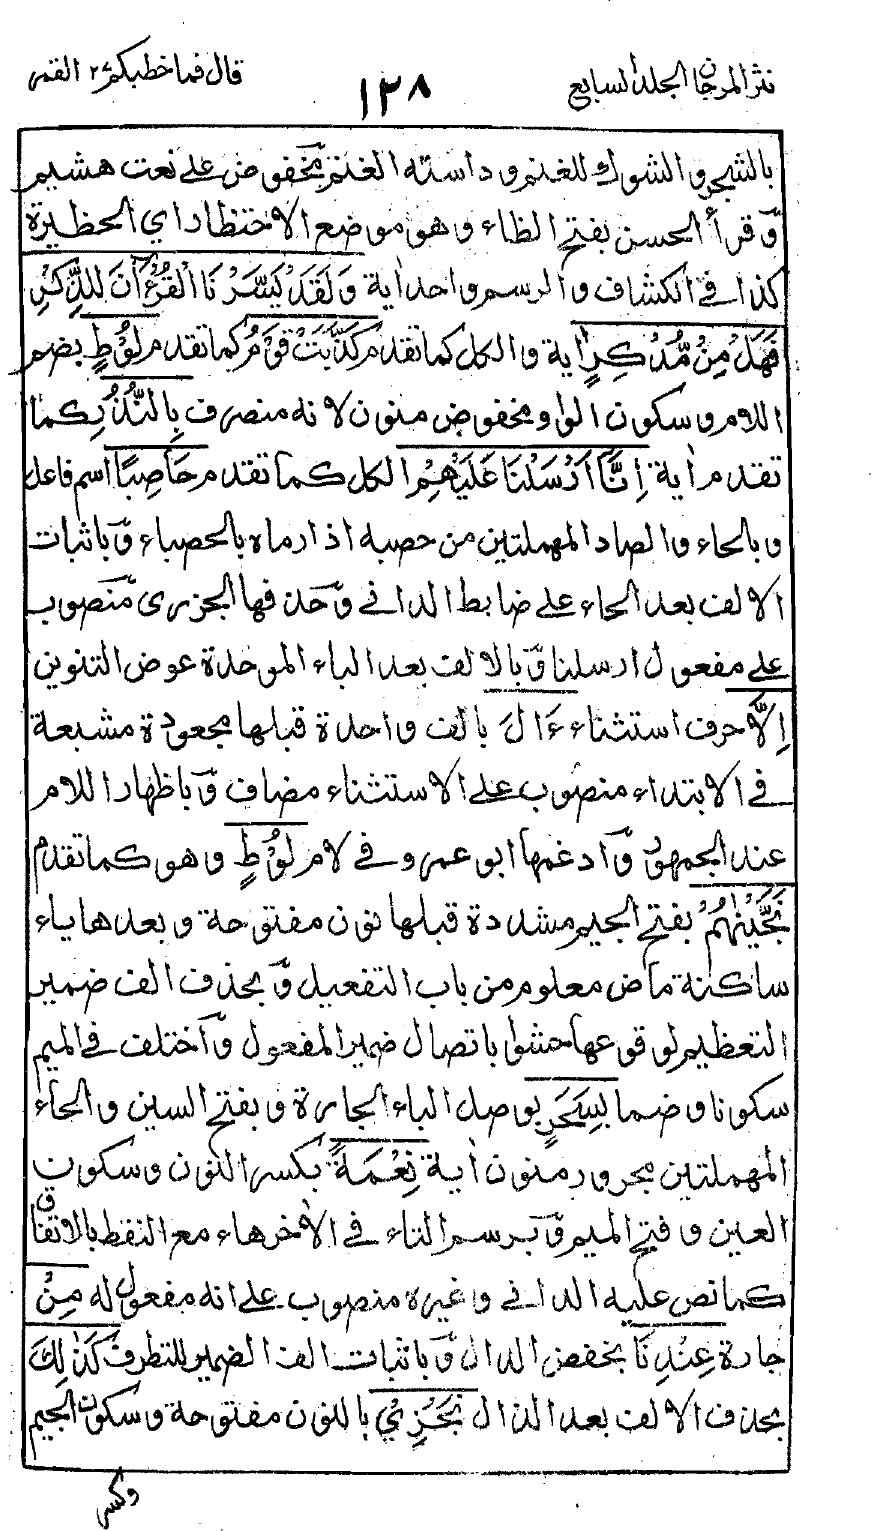 نثر المرجان الجلد السابع
١٢٨
قال فما خطبكم ٢٧ القمر
بالشجر والشوك للغنم وداسته الغنم مخفوض على نعت هشيم
وقرأ الحسن بفتح الظاء وهو موضع الاحتظار اي الحظيرة
كذا في الكشاف والرسم واحد اٰية وَلَقَدْ يَسَّرْنَا الْقُرْءَانَ لِلذِّكْرِ
فَهَلْ مِنْ مُّدَّكِرٍ اٰية والكل كما تقدم كَذَّبَتْ قَوْمُ كما تقدم لُوْطٍ بضم
اللام وسكون الواو مخفوض منون لانه منصرف بِالنُّذُرِ كما
تقدم اٰية اِنَّا اَرْسَلْنَا عَلَيْهِمْ الكل كما تقدم حَاصِبًا اسم فاعل
وبالحاء والصاد المهملتين من حصبه اذا رماه بالحصباء وباثبات
الالف بعد الحاء على ضابط الداني وحذفها الجزري منصوب
على مفعول ارسلنا وبالالف بعد الباء الموحدة عوض التنوين
اِلَّا حرف استثناء ءَالَ بالف واحدة قبلها مجعودة مشبعة
في الابتداء منصوب على الاستثناء مضاف وباظهار اللام
عند الجمهور وادغمها ابو عمرو في لام لُوْطٍ وهو كما تقدم
نَجَّيْنٰهُمْ بفتح الجيم مشددة قبلها نون مفتوحة وبعدها ياء
ساكنة ماض معلوم من باب التفعيل وبحذف الف ضمير
التعظيم لوقوعها حشوا باتصال ضمير المفعول واختلف في الميم
سكونا وضما بِسَحَرٍ بوصل الباء الجارة وبفتح السين والحاء
المهملتين مجرور منون اٰية نِعْمَةً بكسر النون وسكون
العين وفتح الميم وبرسم التاء في الاٰخر هاء مع النقط بالاتفاق
كما نص عليه الداني وغيره منصوب على انه مفعول له مِنْ
جارة عِنْدِنَا بخفض الدال وباثبات الف الضمير للتطرف كَذٰلِكَ
بحذف الالف بعد الذال نَجْزِيْ بالنون مفتوحة وسكون الجيم
وكسر